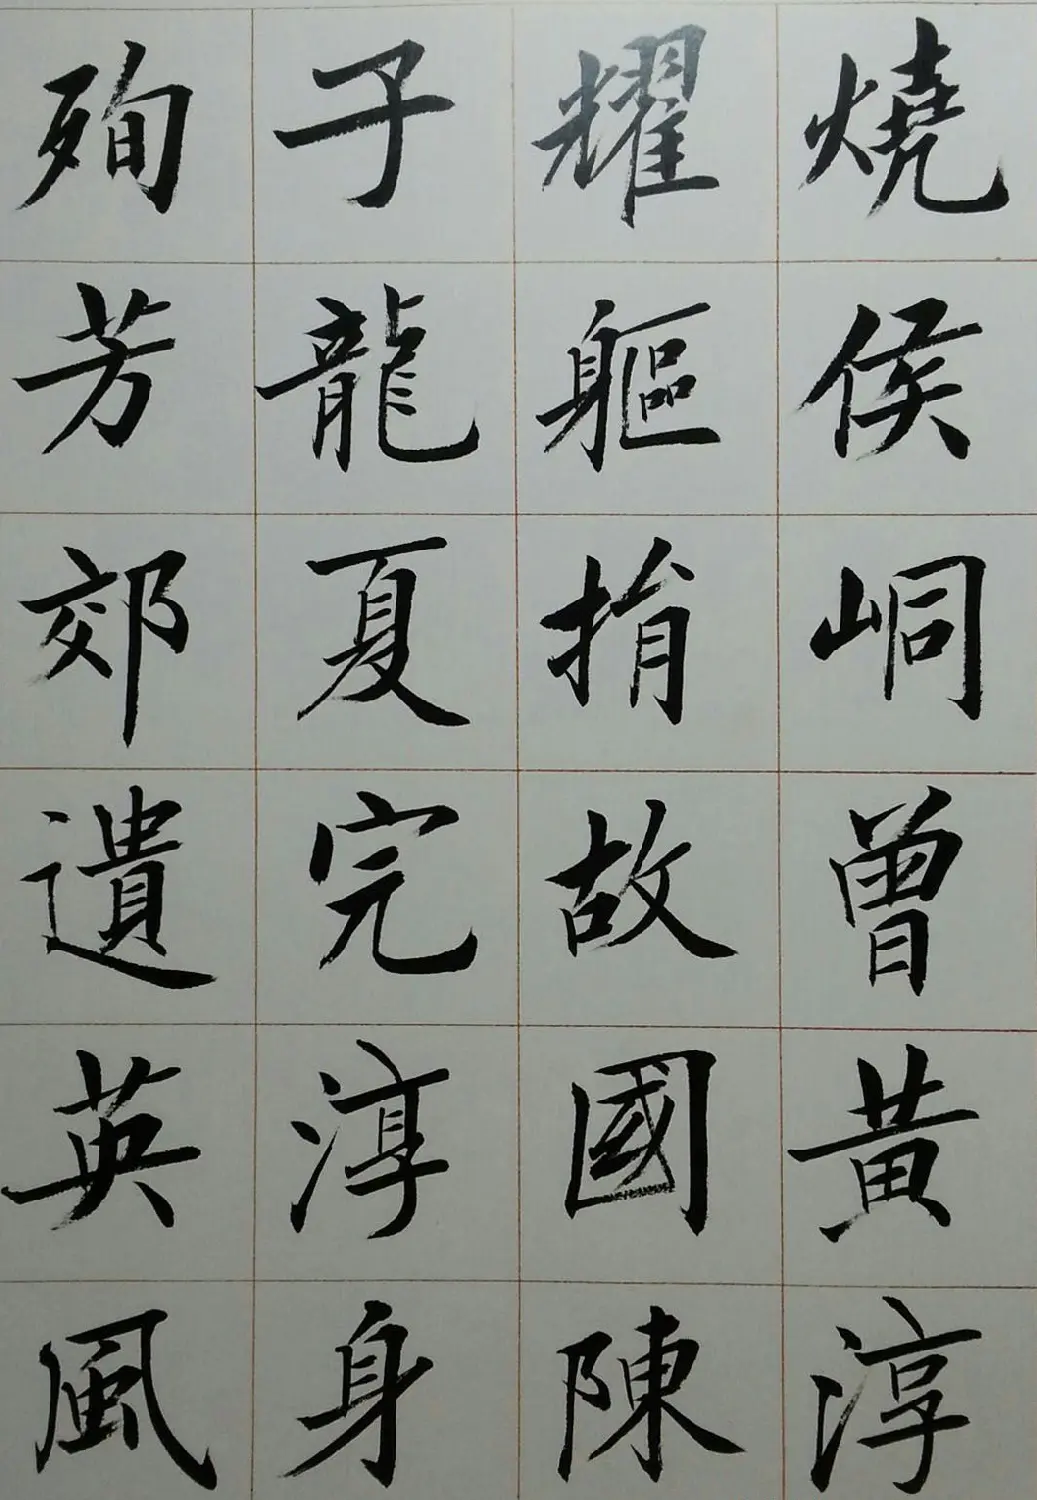 燒侯峒曾黃淳
耀軀捐故國陳
子龍夏完淳身
殉芳郊遺英風